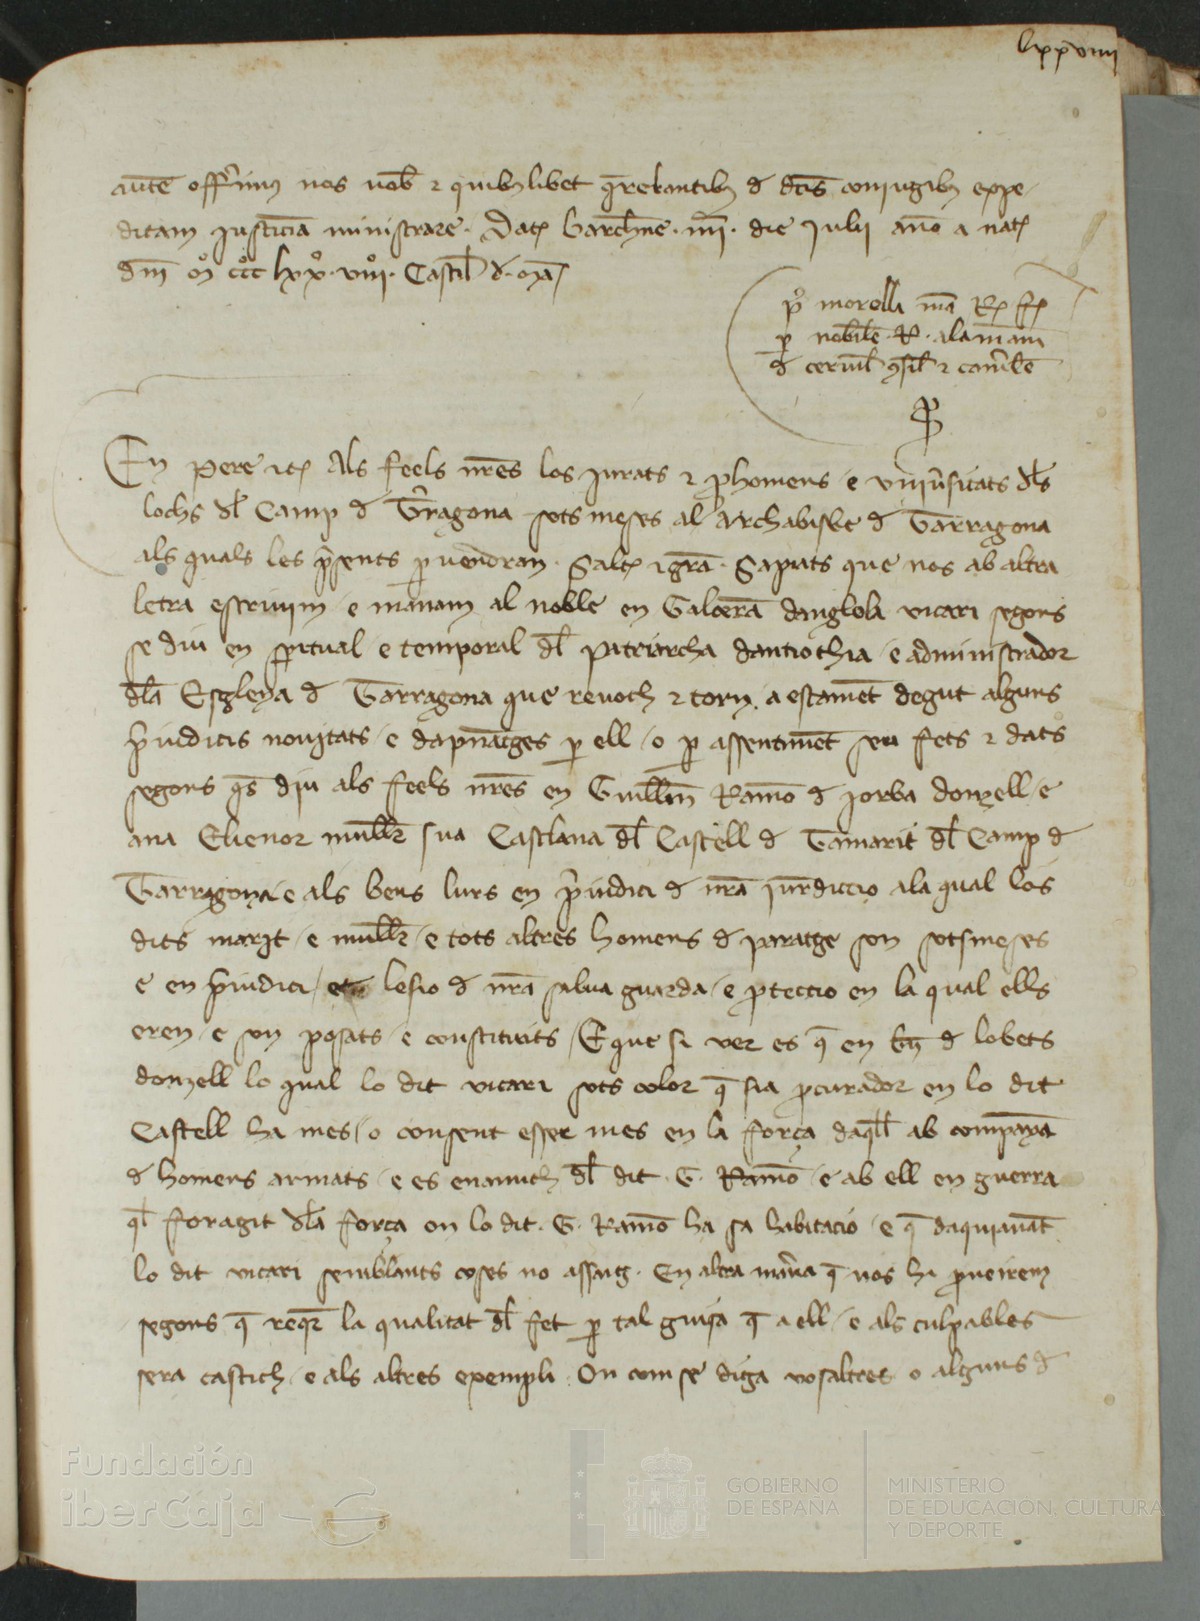 lxxviiii
autē offerim9 nos uob̄ ⁊ quibuslibet q̄relantib9 d̄ dc̄is coniugib9 expe
ditam justiciā ministrare. Dat̄ Barchn̄e .iiiia. die Julii año a nat̄
dn̄i mo ccco lxxo viiio. Castil̄ d.
po morella mā R̄ f̄
p nobilē .R. alamāni
d̄ ceruil̄ ꝯsil̄ ⁊ cam̄lē
P
En Pere ⁊c̄ Als feels nr̄es los Jurats ⁊ p̄homens e vniūsitats dl̄s
lochs dl̄ Camp d̄ Tr̄ragona sotsmeses al Archabisbe d̄ Tarragona
als quals les p̄sents p̄uendran. Salt̄ ⁊ gr̄a. Sapiats que nos ab altra
letra escriuim e manam al noble en Galcerā danglola vicari segons
se diu en sp̄itual e temporal dl̄ patriarcha dantiochia e administrador
dl̄a Esgleya d̄ Tarragona que reuoch ⁊ torn a estamēt degut alguns
p̄iudicis nouitats e dapnatges p̄ ell o p̄ assentimēt seu fets ⁊ dats
segons q̄s diu als feels nr̄es en Guillm̄ Ramō d̄ Jorba donzell e
ana Elienor mull̄r sua Castlana dl̄ Castell d̄ Tamarit dl̄ Camp d̄
Tarragona e als bens lurs en p̄iudici d̄ nr̄a jur̄diccio ala qual los
dits marit e mull̄r e tots altres homens d̄ paratge son sotsmeses
e en p̄iudici e lesio d̄ nr̄a salua guarda e p̄teccio en la qual ells
eren e son posats e constituits E que si ver es q̄ en d̄ lobets
donzell lo qual lo dit vicari sots color q̄ sia p̄curador en lo dit
Castell ha mes o consent esser mes en la força daql̄l ab companya
d̄ homens armats e es enamich dl̄ dit .G. Ramō e ab ell en guerra
ql̄ foragit dl̄a força on lo dit .G. Ramō ha sa habitacio e q̄ daquiauāt
lo dit vicari semblants coses no assaig. En altra man̄a q̄ nos hi p̄ueirem
segons q̄ reqr̄ la qualitat dl̄ fet p̄ tal guisa q̄ a ell e als culpables
sera castich e als altres exempli. On com se diga vosaltres o alguns d̄
Fundación
iberCaja
GOBIERNO
DE ESPAÑA
MINISTERIO
DE EDUCACIÓN, CULTURA
Y DEPORTE